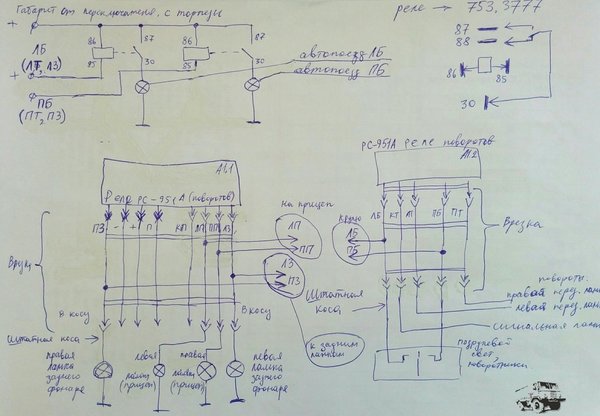 Габарит от переключателя с торпеды
реле → 753,3777
+
87
88
86
85
30
ЛБ
(ЛТ, ЛЗ)
+
86
85
87
30
86
85
87
30
ПБ
(ПТ, ПЗ)
автопоезд ЛБ
автопоезд ПБ
А61
Реле РС-951А (поворотов)
ПЗ - + П КП ЛП ПП ЛЗ
на прицеп
ЛП
ПП
ЛЗ
ПЗ
к задним
лампам
В косу
В косу
Штатная коса
правая
лампа
заднего
фонаря
левая
(прицеп)
правая
(прицеп)
левая
лампа
заднего
фонаря
РС-951А Реле поворотов
А12
ЛБ КТ ЛТ ПБ ПТ
ЛБ
ПБ
Врезка
Штатная
коса
повороты
правой перед.
левой перед.
сигнальная
свет,
поворотники